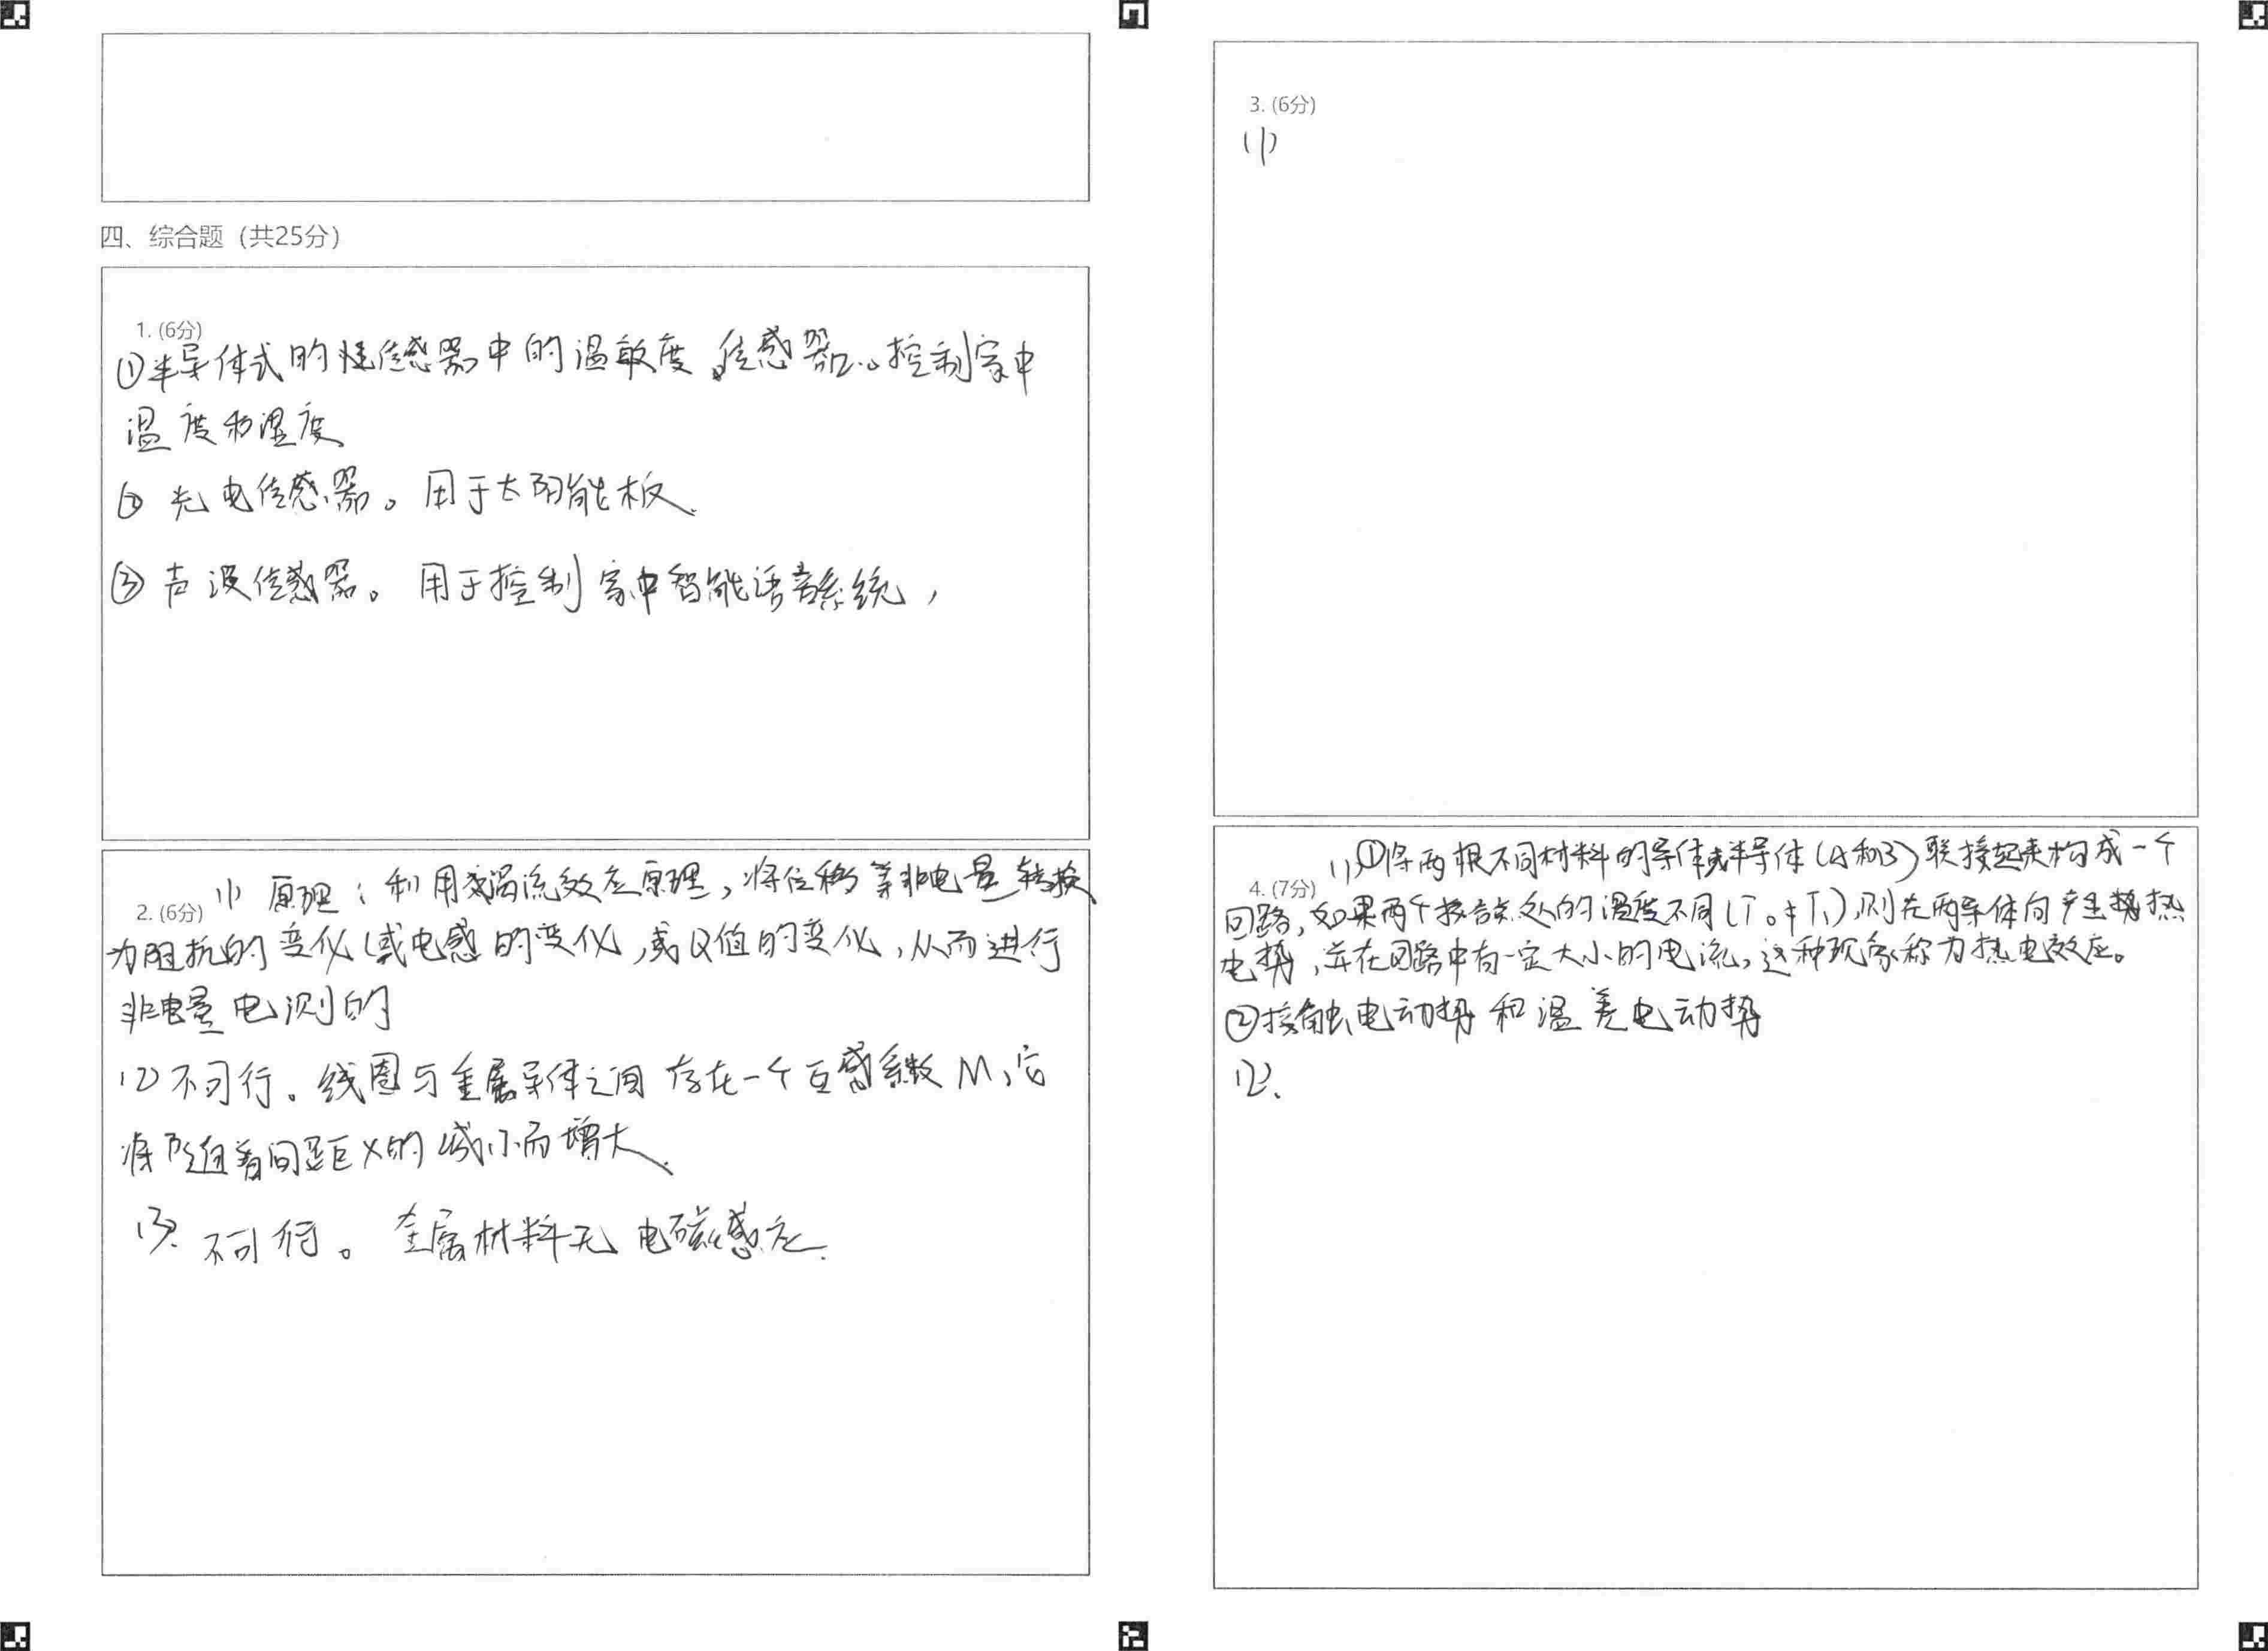 四、综合题（共25分）
1. (6分)
①半导体式的传感器中的温敏度传感器。控制家中
温度和湿度
② 光电传感器。用于太阳能板.
③ 声波传感器。用于控制家中智能语音系统，
2. (6分) (1) 原理：利用涡流效应原理，将位移等非电量转换
为阻抗的变化（或电感的变化，或Q值的变化，从而进行
非电量电测的
(2) 不可行。线圈与金属导体之间存在一个互感系数M，它
将随着间距X的减小而增大.
(3). 不可行。金属材料无电磁感应.
3. (6分)
(1)
4. (7分) (1)①将两根不同材料的导体或半导体（A和B）联接起来构成一个
回路，如果两个接合点处的温度不同（T₀≠T₁），则在两导体间产生热
电势，并在回路中有一定大小的电流，这种现象称为热电效应。
②接触电动势和温差电动势
(2).